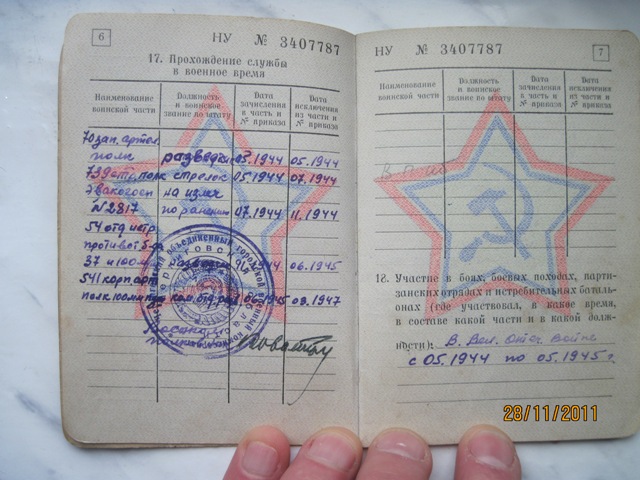 6
НУ № 3407787
17. Прохождение службы
в военное время
Наименование
воинской части
Должность
и воинское
звание по штату
Дата
зачисления
в часть и
№ приказа
Дата
исключения
из части и
№ приказа
70 зап. артил.
полк разведчик 05.1944 05.1944
739 стр. полк стрелок 05.1944 07.1944
Эвакогосп на изле
№2817 по ранению 07.1944 11.1944
54 отд истр
противот
37 и 100 06.1945
541 корп арт
полк ком. отд 1945 03.1947
НУ № 3407787
7
Наименование
воинской части
Должность
и воинское
звание по штату
Дата
зачисления
в часть и
№ приказа
Дата
исключения
из части и
№ приказа
18. Участие в боях, боевых походах, парти-
занских отрядах и истребительных баталь-
онах (где участвовал, в какое время,
в составе какой части и в какой долж-
ности): В. Вел. Отеч. войне
с 05.1944 по 05.1945 г.
28/11/2011